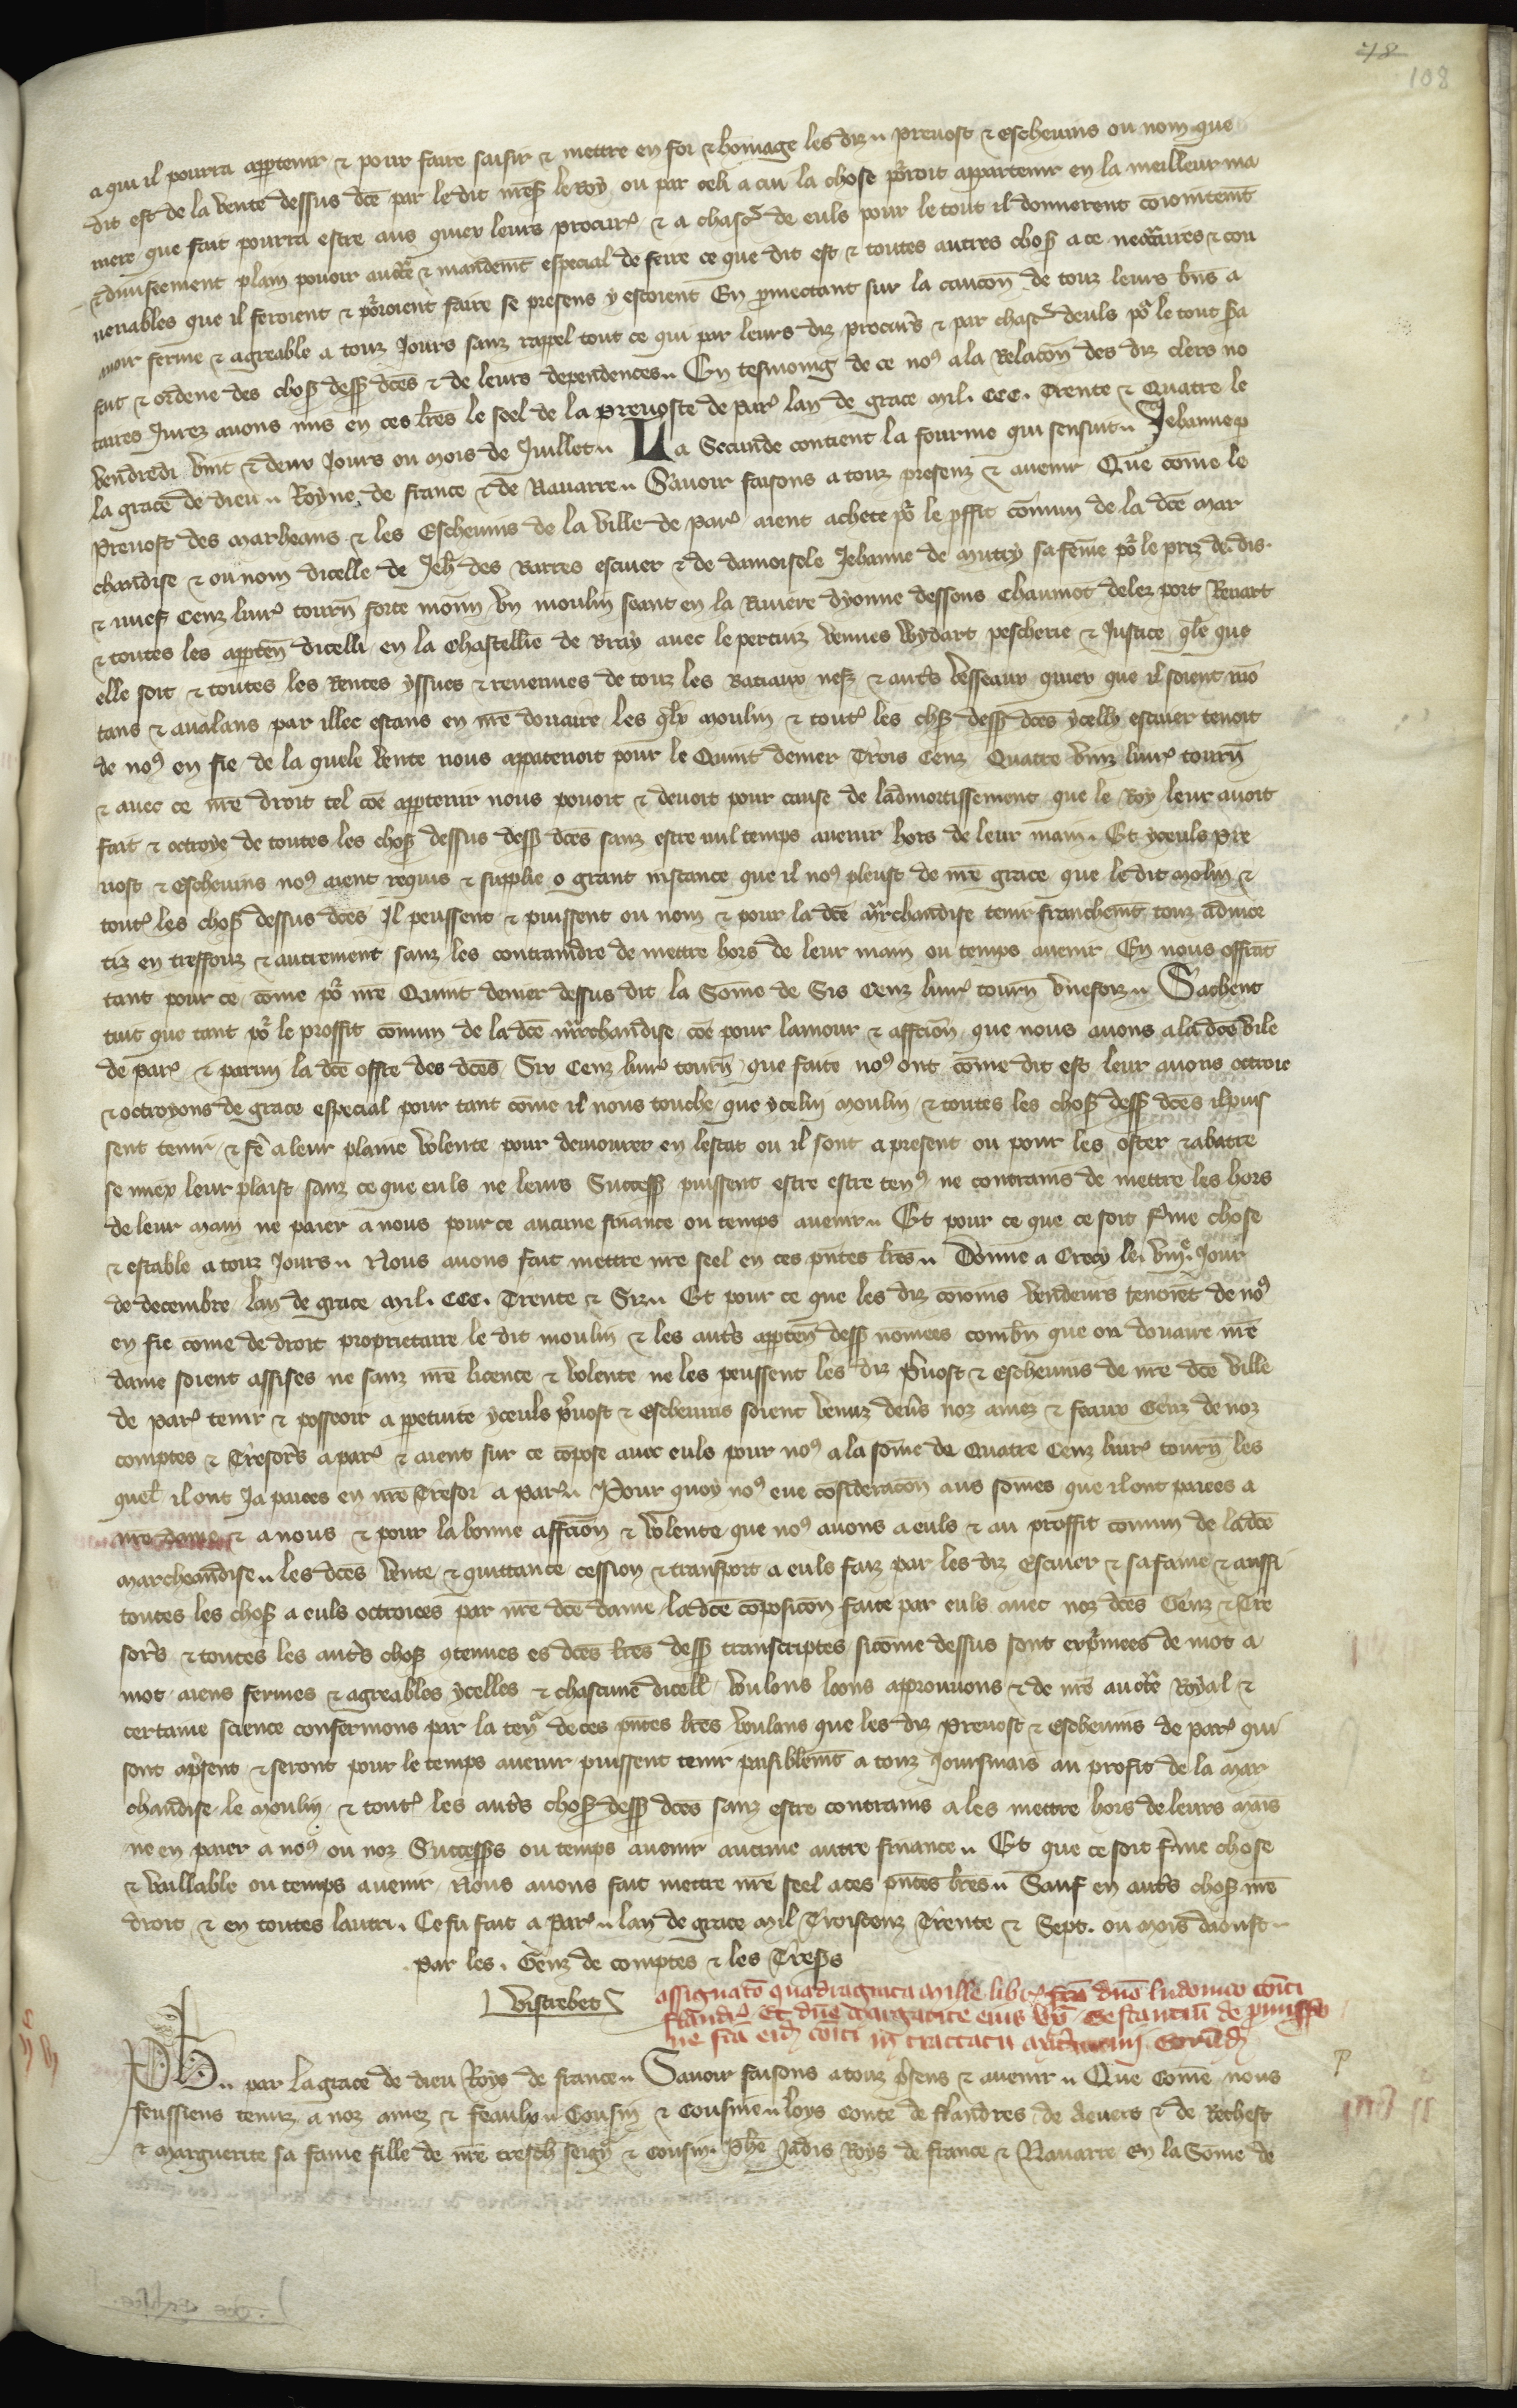 48
108
a qui il pourra apptenir & pour faire saisir & mettre en foi & hōmage les diz prevost & eschevins ou nom que
dit est de la vente dessus dcē par le dit nrēs le Roy ou par celi a cui la chose pōroit appartenir en la meilleur ma
niere que fait pourra estre aus quiex leurs procurs & a chascū de euls pour le tout il donnerent cōiointemt
& diviseement plain pouoir auctē & mandemt especial de feire ce que dit est & toutes autres chos a ce necc̄aires & con
venables que il feroient & pōroient faire se presens y estoient En pmectant sur la caucōn de touz leurs bns a
avoir ferme & agreable a touz Jours sanz rappel tout ce qui par leurs diz procurs & par chascū deuls pō le tout sa
fait & ordene des chos dess dcēs & de leurs dependences En tesmoing de ce nos a la Relacōn des diz clers no
taires Jurez avons mis en ces lrēs le seel de la prevoste de Par lan de grace mil. CCC. Trente & Quatre le
vendredi vint & deux Jours ou mois de Juillet La Secunde contient la fourme qui sensuit Jehanne p
la grace de dieu Royne de france & de Navarre Savoir faisons a touz presenz & avenir Que cōme le
Prevost des marheans & les Eschevins de la ville de Par aient achete pō le pffit cōmun de la dcē mar
chandise & ou nom dicelle de Jeh des Barres escuier & de damoisele Jehanne de mitry sa fēme pō le priz de dis
& nuef Cenz livr tourn forte monn un moulin seant en la Riviere dyonne dessous Chaumot delez port Renart
& toutes les appten dicelli en la Chastellie de Bray avec le pertuiz vennes Wydart pescherie & Justice qle que
elle soit & toutes les Rentes yssues & revenues de touz les Batiaux nes & auts vesseaux quiex que il soient mō
tans & avalans par illec estans en nrē douaire les qlx moulin & tout les chs dess dcēs ycelly escuier tenoit
de nos en fie de la quele vente nous appatenoit pour le Quint denier Trois Cenz Quatre vinz livr tourn
& avec ce nrē droit tel cōe apptenir nous pouoit & devoit pour cause de ladmortissement que le Roy leur avoit
fait & octroye de toutes les chos dessus dess dcēs sanz estre nul temps avenir hors de leur main Et yceuls Pre
vost & Eschevins nos aient requis & supplie o grant instance que il nos pleust de nrē grace que le dit molin &
tout les chos dessus dcēs Il peussent & puissent ou nom & pour la dcē mrchandise tenir franchemt touz admor
tiz en tresfonz & autrement sanz les contraindre de mettre hors de leur main ou temps avenir En nous offrat
tant pour ce cōme pō nrē Quint denier dessus dit la Sōme de Sis Cenz livr tourn unefoiz Sachent
tuit que tant pō le proffit cōmun de la dcē mrchandise cōe pour lamour & affcion que nous avons a la dcē vile
de Par & parmi la dcē offre des dcēs Six Cenz livr tourn que faite nos ont cōme dit est leur avons octroie
& octroyons de grace especial pour tant cōme il nous touche que ycelui moulin & toutes les chos dess dcēs il puis
sent tenir & fē a leur plaine volente pour demourer en lestat ou il sont a present ou pour les oster & abatre
se miex leur plaist sanz ce que euls ne leurs Success puissent estre estre tens ne contrains de mettre les hors
de leur main ne paier a nous pour ce aucune finance ou temps avenir Et pour ce que ce soit fme chose
& estable a touz Jours Nous avons fait mettre nrē seel en ces pntes lrēs Donne a Crecy le viije Jour
de decembre lan de grace mil. CCC. Trente & Siz Et pour ce que les diz cōioins vendeurs tenoiēt de nos
en fie come de droit proprietaire le dit moulin & les auts appten dess nomees combn que ou douaire nrē
dame soient assises ne sanz nrē licence & volente ne les peussent les diz pvost & Eschevins de nrē dcē ville
de Par tenir & possoir a ppetuite yceuls pvost & Eschevins soient venuz devs noz amez & feaux Genz de noz
comptes & Tresors a Par & aient sur ce cōpose avec euls pour nos a la sōme de Quatre Cenz livr tourn les
quel il ont Ja paiees en nrē Tresor a Par Pour quoy nos eue cōsideracōn aus sōmes que il ont paiees a
nrē dame & a nous & pour la bonne affcion & volente que nos avons a euls & au proffit comun de la dcē
marcheandise les dcēs vente & quittance cession & transport a euls faiz par les diz Escuier & sa fame & aussi
toutes les chos a euls octroiees par nrē dcē dame la dcē cōposicōn faite par euls avec noz dcēs Genz & Tre
sors & toutes les auts chos qtenues es dcēs lrēs dess transcriptes sicōme dessus sont expmees de mot a
mot aiens fermes & agreables ycelles & chascune dicell voulons loons approuvons & de nrē auctē Royal &
certaine science confermons par la teno de ces pntes lrēs voulans que les diz Prevost & Eschevins de Par qui
sont apsent & seront pour le temps avenir puissent tenir paisiblemt a touz Joursmais au profit de la mar
chandise le moulin & tout les auts chos dess dcēs sanz estre contrains a les mettre hors de leurs mais
ne en paier a nos ou noz Successs ou temps avenir aucune autre finance Et que ce soit fme chose
& vaillable ou temps avenir Nous avons fait mettre nrē seel a ces pntes lrēs Sauf en auts chos nrē
droit & en toutes lautri Ce fu fait a Par lan de grace mil Troiscenz Trente & Sept. ou mois daoust
Par les Genz de comptes & les Tress
Vistrebet
assignatō quadraginta mille libr fcā dnō ludovico cōiti
flandr Et dnē Margarite eius uxi
Ph par la grace de dieu Roys de france Savoir faisons a touz psens & avenir Que Comē nous
feussiens tenuz a noz amez & feaulx Cousin & Cousine Loys Conte de flandres de Nevers & de Rethest
& Marguerite sa fame fille de nrē tresch seign & Cousin Phē Jadis Roys de france & Navarre En la Sōme de